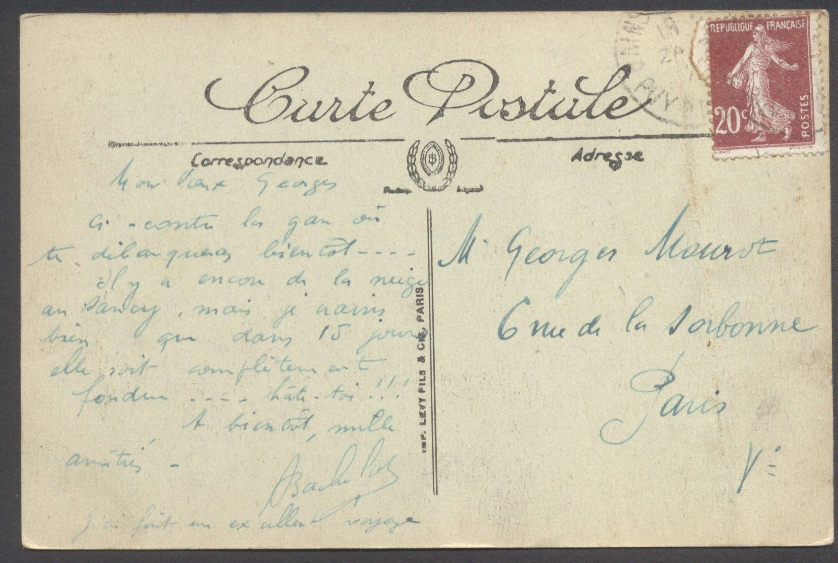 Carte Postale
Correspondance
Adresse
RÉPUBLIQUE FRANÇAISE
20c
POSTES
PUY
Mon vieux Georges
Ci-contre la gare où
tu débarqueras bientôt ----
Il y a encore de la neige
au Sancy, mais je crains
bien que dans 15 jours
elle soit complètement
fondue ---- hâte-toi !!!
A bientôt, mille
amitiés -
J'ai fait un excellent voyage
IMP. LEVY FILS & Cie, PARIS
Mr Georges Mourot
6 rue de la Sorbonne
Paris
Ve